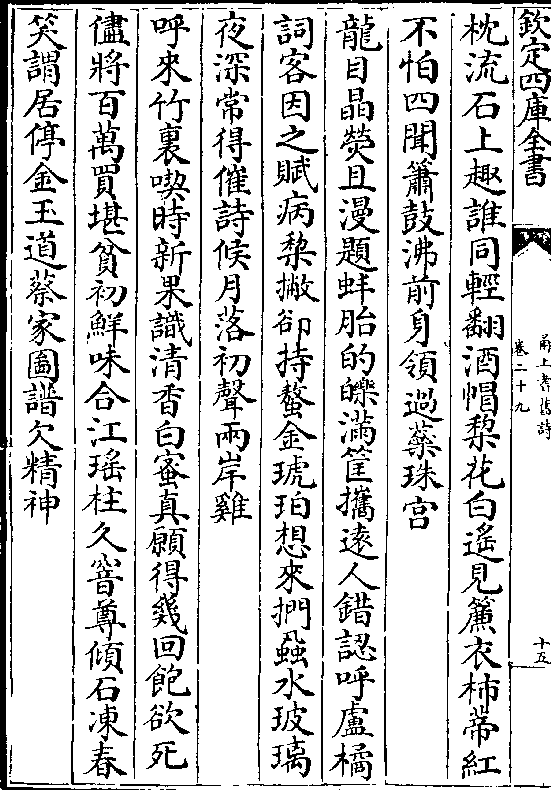 欽定四庫全書
甬上耆舊詩
卷二十九
十五
枕流石上趣誰同輕翻酒帽梨花白遙見簾衣柿蒂紅
不怕四聞簫鼓沸前身領過蘂珠宫
龍目晶熒且漫題蚌胎的皪滿筐攜遠人錯認呼盧橘
詞客因之賦病棃撇卻持螯金琥珀想來捫蝨水玻璃
夜深常得催詩候月落初聲兩岸雞
呼來竹裏喫時新果識清香白蜜真願得幾回飽欲死
儘將百萬買堪貧初鮮味合江瑤柱久窨尊傾石凍春
笑謂居停金玉道蔡家圖譜欠精神